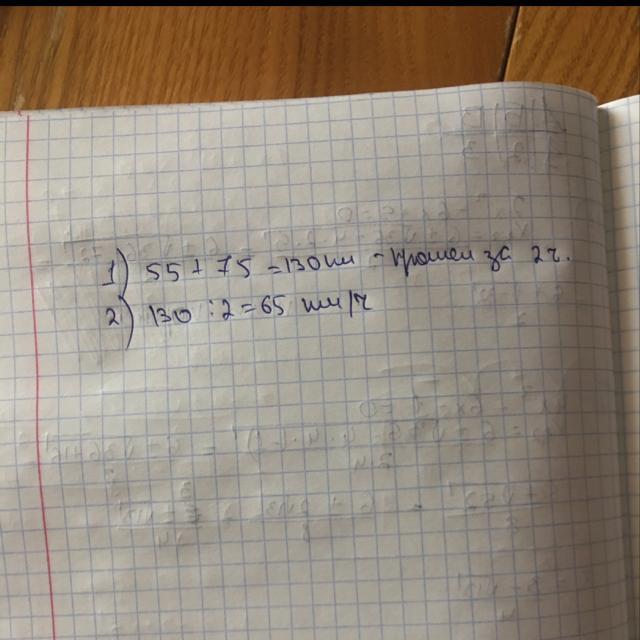 1) 55 + 75 = 130 км - прошел за 2 ч.
2) 130 : 2 = 65 км/ч